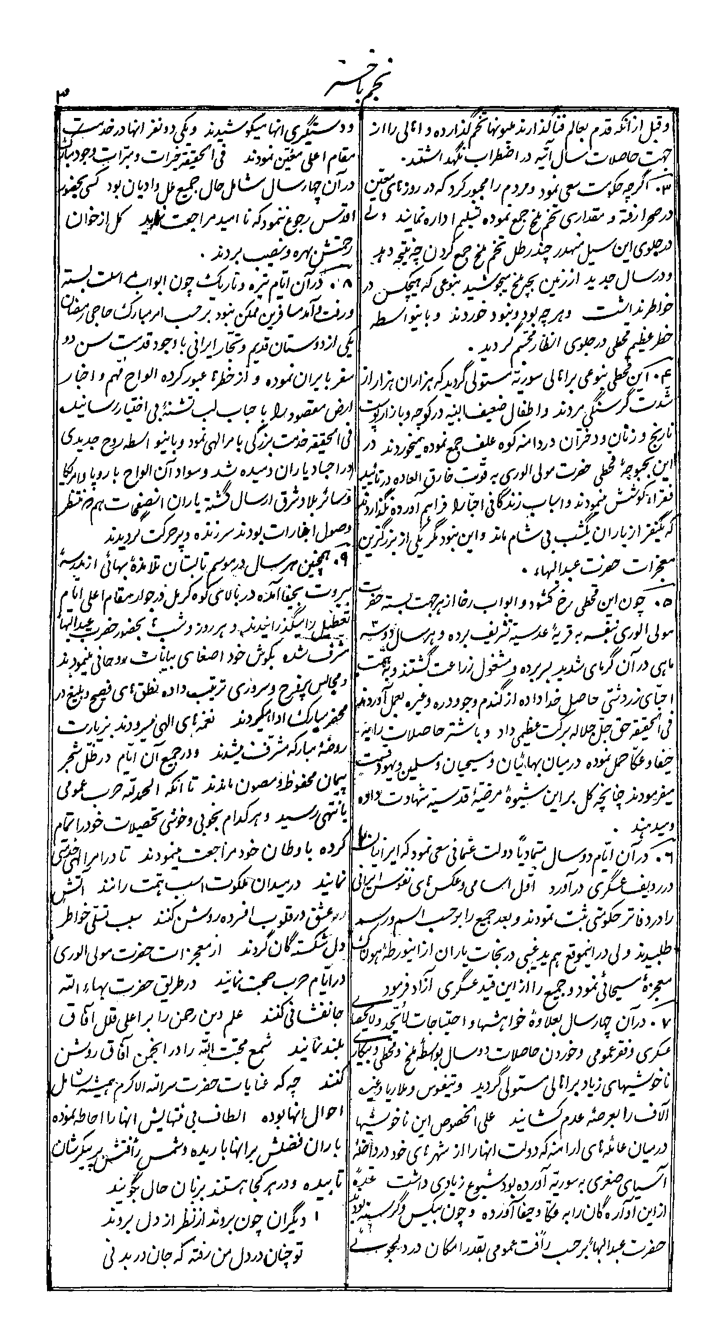 نجم باختر
۳
و قبل از آنکه قدم بعالم فنا گذارند ملیونها تخم گذارده و اهالی را از
جهت حاصلات سال آتیه در اضطراب نگهداشتند .
۳۰ اگرچه حکومت سعی نمود و مردم را مجبور کرد که در روزهای معین
در صحرا رفته و مقداری تخم ملخ جمع نموده تسلیم اداره نمایند ولی
در جلوی این سیل منهدر چند رطل تخم ملخ جمع کردن چه نتیجه دهد
و در سال جدید از زمین بچه ملخ میجوشید بنوعی که هیچکس در
خواطر نداشت و هرچه بود و نبود خوردند و باینواسطه
خطر عظیم قحطی در جلوی انظار مجسم گردید .
۴۰ این قحطی بنوعی بر اهالی سوریه مستولی گردید که هزاران هزار از
شدت گرسنگی مردند و اطفال ضعیف البنیه در کوچه و بازار
و زنان و دختران در دامنه کوه علف جمع نموده میخوردند در
این بحبوحهٔ قحطی حضرت مولی الوری به قوت خارق العاده در تأئید
فقراء کوشش میفرمودند و اسباب زندگانی احبا را فراهم آورده نگذاردند
که یکنفر از یاران یکشب بی شام ماند و این نبود مگر یکی از بزرگترین
معجزات حضرت عبدالبهاء .
۵۰ چون این قحطی رخ گشود و ابواب رخا از هر جهت بسته حضرت
مولی الوری بنفسه به قریهٔ عدسیه تشریف برده و هر سال دو سه
ماهی در آن گرمای شدید بسر برده و مشغول زراعت گشتند و بهمت
احبای زردشتی حاصل خداداده از گندم و جو و ذره و غیره بعمل آوردند
فی الحقیقه حق جل جلاله برکت عظیمی داد و باشتر حاصلات را به
حیفا و عکا حمل نموده درمیان بهائیان و مسیحیان و مسلمین و یهود قسمت
میفرمودند چنانچه کل بر این شیوهٔ مرضیهٔ قدسیه شهادت داده
و میدهند .
۶۰ در آن ایام دو سال متمادیاً دولت عثمانی سعی نمود که ایرانیان را
در ردیف عسگری درآورد اول اسامی و عکس های نفوس ایرانی
را در دفاتر حکومتی ثبت نمودند و بعد جمیع را بر حسب اسم و رسم
طلبیدند ولی در اینموقع هم ید غیبی در نجات یاران از اینورطه هولناک
معجزهٔ مسیحائی نمود و جمیع را از این قید عسگری آزاد فرمود
۷۰ در آن چهار سال بعلاوهٔ خواهشها و احتیاجات
عسکری و فقر عمومی و خوردن حاصلات دو سال بواسطهٔ ملخ و قحطی و بیکاری
ناخوشیهای زیاد بر اهالی مستولی گردید و تیفوس و ملاریا و غیره
آلاف را بعرصهٔ عدم کشانید علی الخصوص این ناخوشیها
درمیان عائله های ارامنه که دولت آنها را از شهرهای خود در داخلهٔ
آسیای صغری به سوریه آورده بود شیوع زیادی داشت عدهٔ
از این آواره گان را به عکا و حیفا آورده و چون بیکس و گرسنه بودند
حضرت عبدالبهاء بر حسب رأفت عمومی بقدر امکان در دلجوئی
و دستگیری آنها میکوشیدند و یکی دو نفر آنها در خدمت
مقام اعلی معین نمودند فی الحقیقه خیرات و مبرات وجود مبارک
در آن چهار سال شامل حال جمیع ملل و ادیان بود کسی بحضور
اقدس رجوع ننمود که ناامید مراجعت نماید کل از خوان
رحمتش بهره و نصیب بردند .
۸۰ در آن ایام تیره و تاریک چون ابواب مراسلات بسته
و رفت و آمد مسافرین ممکن نبود بر حسب امر مبارک حاجی رمضان
یکی از دوستان قدیم و تجار ایرانی با وجود قدمت سن دو
سفر بایران نموده و از خطرها عبور کرده الواح مهم و اخبار
ارض مقصود را با جاب لب تشنهٔ بی اختیار رسانید
فی الحقیقه خدمت بزرگی بامر الهی نمود و باینواسطه روح جدیدی
در اجساد یاران دمیده شد و سواد آن الواح باروپا و امریکا
و سائر بلاد شرق ارسال گشته یاران آنصفحات هم که منتظر
وصول اخبارات بودند سر زنده و پر حرکت گردیدند
۹۰ همچنین هر سال در موسم تابستان تلامذهٔ بهائی از مدرسهٔ
بیروت بحیفا آمده در بالای کوه کرمل در جوار مقام اعلی ایام
تعطیل را میگذرانیدند و هر روز و شب بحضور حضرت عبدالبهاء
مشرف شده بگوش خود اصغای بیانات روحانی مینمودند
و مجالس پر فرح و سروری ترتیب داده نطق های فصیح و بلیغ در
محضر مبارک ادا میکردند نغمه های الهی میسرودند بزیارت
روضهٔ مبارکه مشرف میشدند و در جمیع آن ایام در ظل شجر
پیمان محفوظ و مصون ماندند تا آنکه الحمدلله حرب عمومی
بانتهی رسید و هر کدام بخوبی و خوشی تحصیلات خود را تمام
کرده باوطان خود مراجعت مینمودند تا در امر الهی خدمتی
نمایند در میدان ملکوت اسب همت رانند آتش
عشق در قلوب افسرده روشن کنند سبب تسلی خواطر
دل شکسته گان گردند از معجزات حضرت مولی الوری
در ایام حرب صحبت نمایند در طریق حضرت بهاءالله
جانفشانی کنند علم دین رحمن را بر اعلی قلل آفاق
بلند نمایند شمع محبت الله را در انجمن آفاق روشن
کنند چه که عنایات حضرت سرالله الاکرم همیشه شامل
احوال آنها بوده الطاف بی منتهایش آنها را احاطه نموده
باران فضلش بر آنها باریده و شمس رأفتش بر پیکرشان
تابیده و در هر کجا هستند بزبان حال بگویند
دیگران چون بروند از نظر از دل بروند
تو چنان در دل من رفته که جان در بدنی